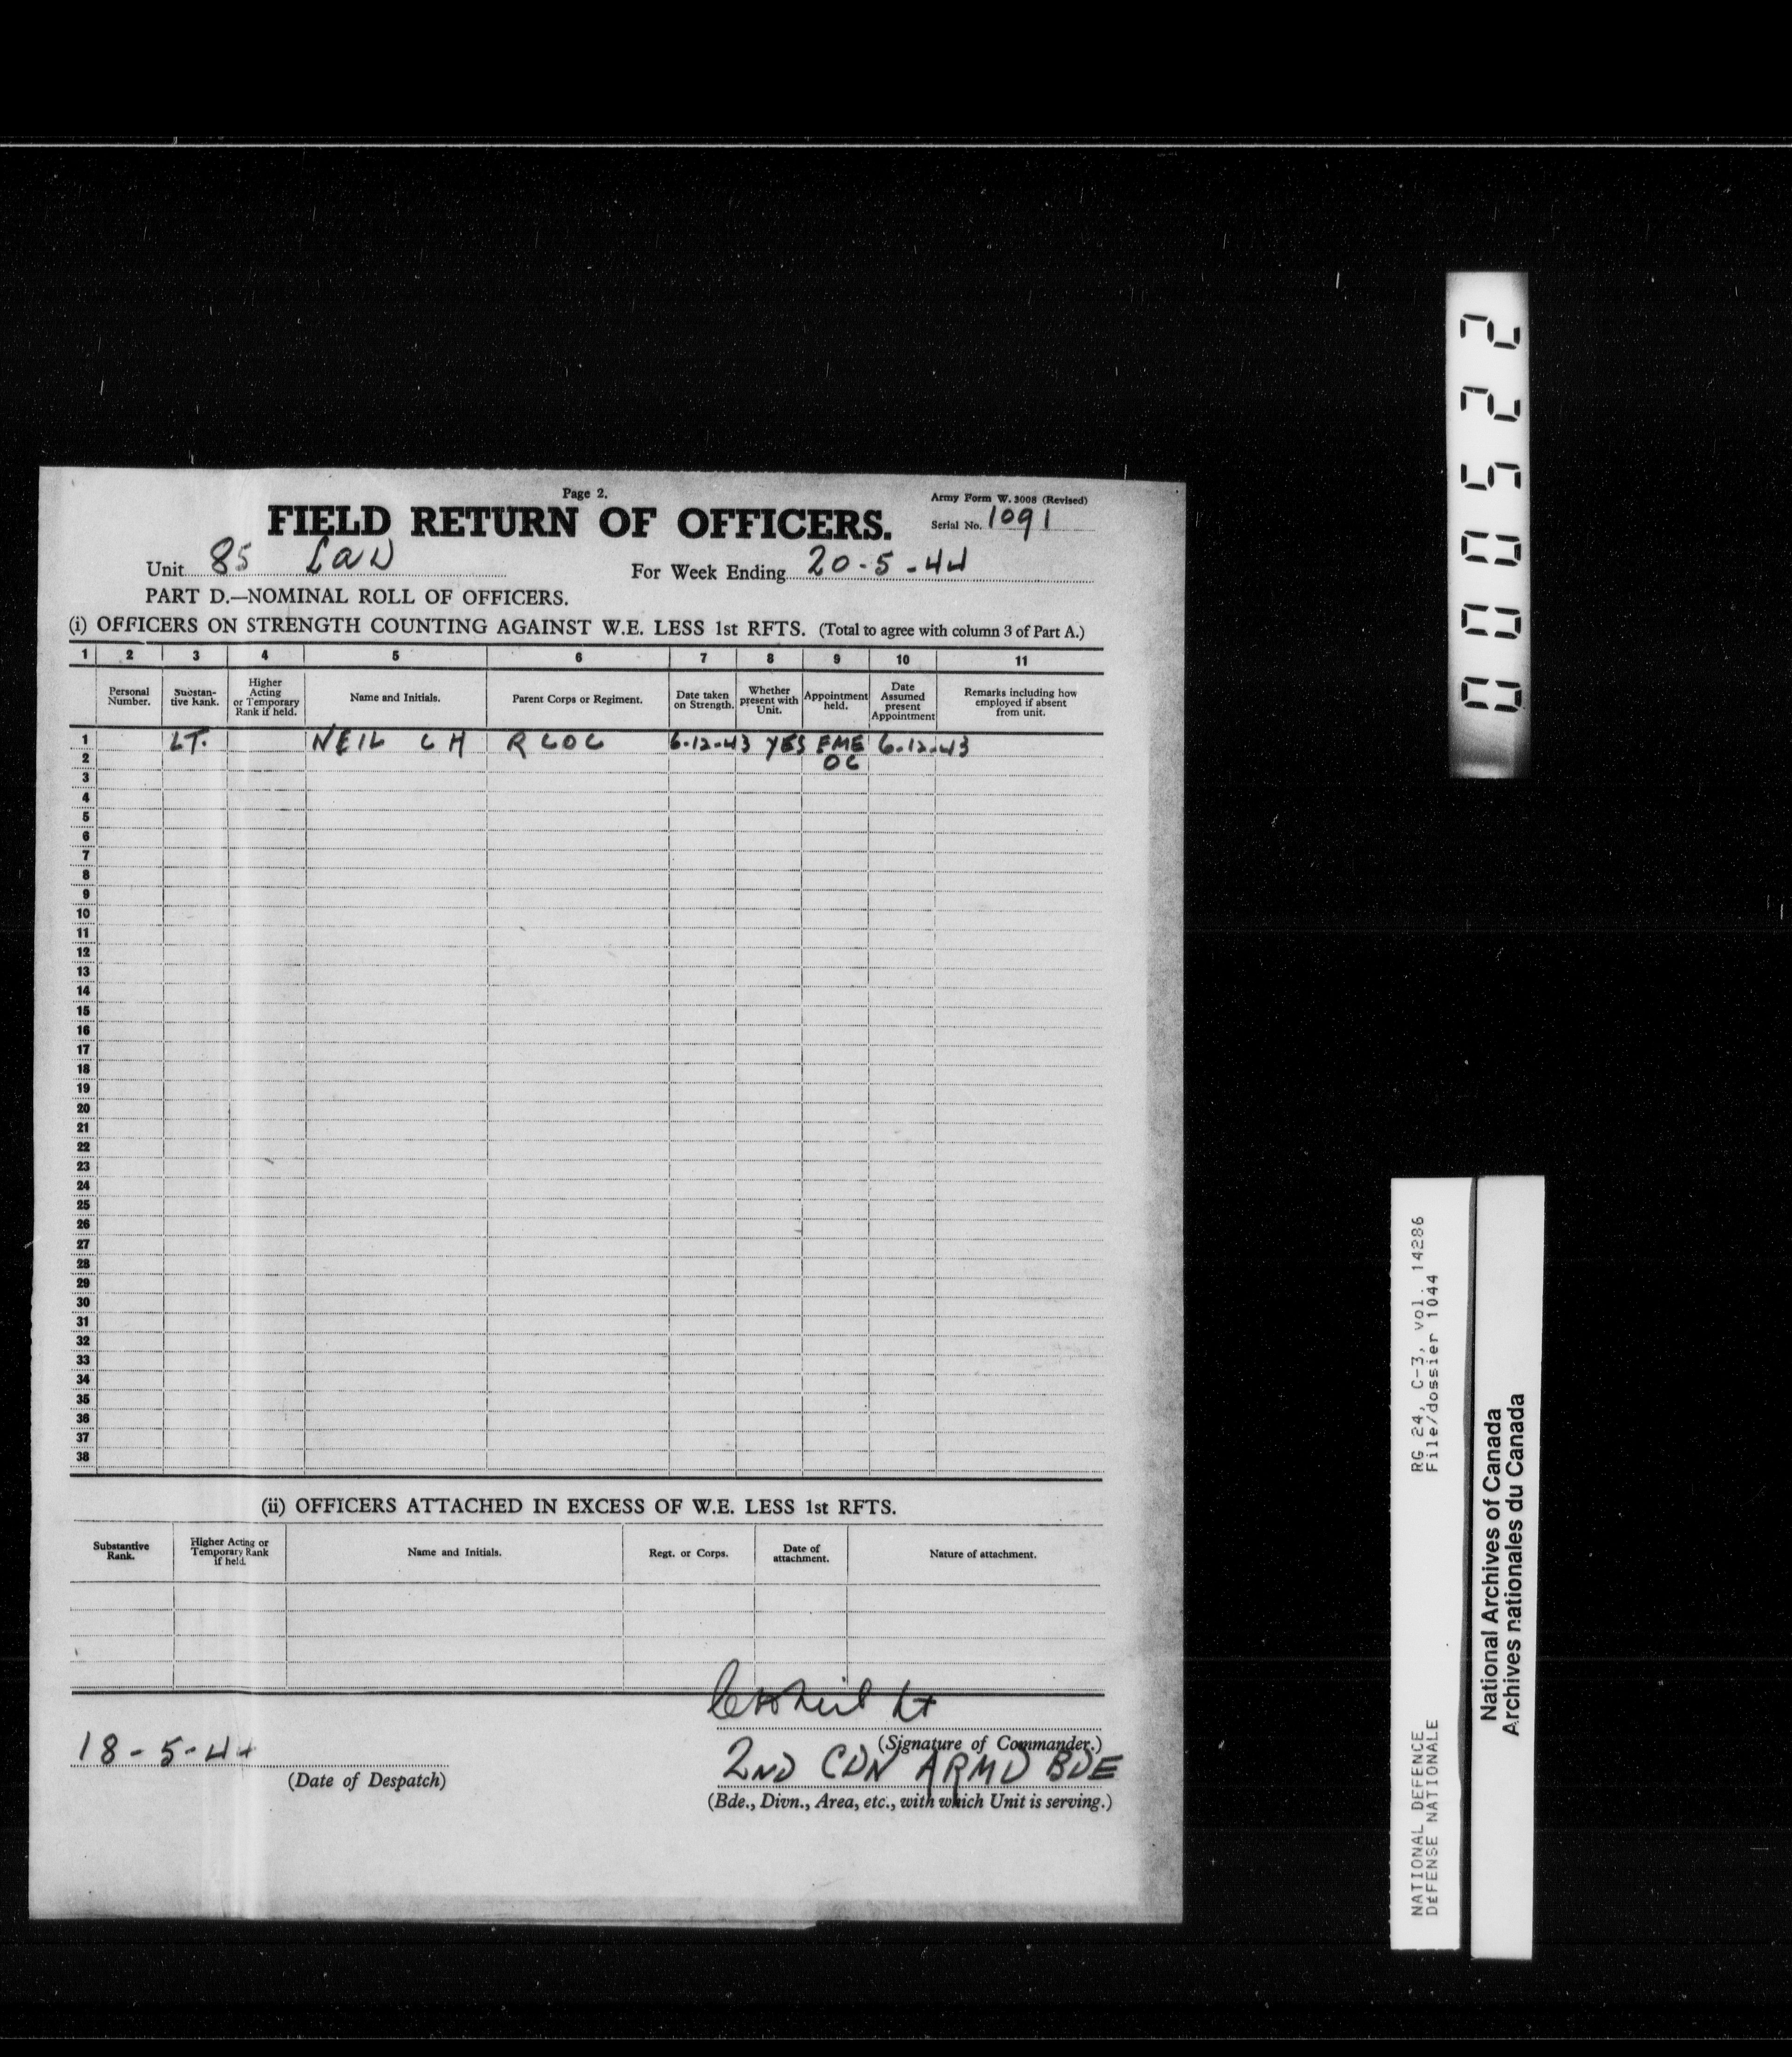 Page 2.
Army Form W. 3008 (Revised)
FIELD RETURN OF OFFICERS.
Serial No. 1091
Unit 85 LAD
For Week Ending 20-5-44
PART D.—NOMINAL ROLL OF OFFICERS.
(i) OFFICERS ON STRENGTH COUNTING AGAINST W.E. LESS 1st RFTS. (Total to agree with column 3 of Part A.)
1 2 3 4 5 6 7 8 9 10 11
Personal Number. Substan-tive Rank. Higher Acting or Temporary Rank if held. Name and Initials. Parent Corps or Regiment. Date taken on Strength. Whether present with Unit. Appointment held. Date Assumed present Appointment Remarks including how employed if absent from unit.
1 LT. NEIL C H RCOC 6-12-43 YES EME 6-12-43
2 OC
3
4
5
6
7
8
9
10
11
12
13
14
15
16
17
18
19
20
21
22
23
24
25
26
27
28
29
30
31
32
33
34
35
36
37
38
(ii) OFFICERS ATTACHED IN EXCESS OF W.E. LESS 1st RFTS.
Substantive Rank. Higher Acting or Temporary Rank if held. Name and Initials. Regt. or Corps. Date of attachment. Nature of attachment.
CH Neil Lt
(Signature of Commander.)
18-5-44
2ND CDN ARMD BDE
(Date of Despatch)
(Bde., Divn., Area, etc., with which Unit is serving.)
000522
NATIONAL DEFENCE RG 24, C-3, vol. 14286
DÉFENSE NATIONALE File/dossier 1044
National Archives of Canada
Archives nationales du Canada